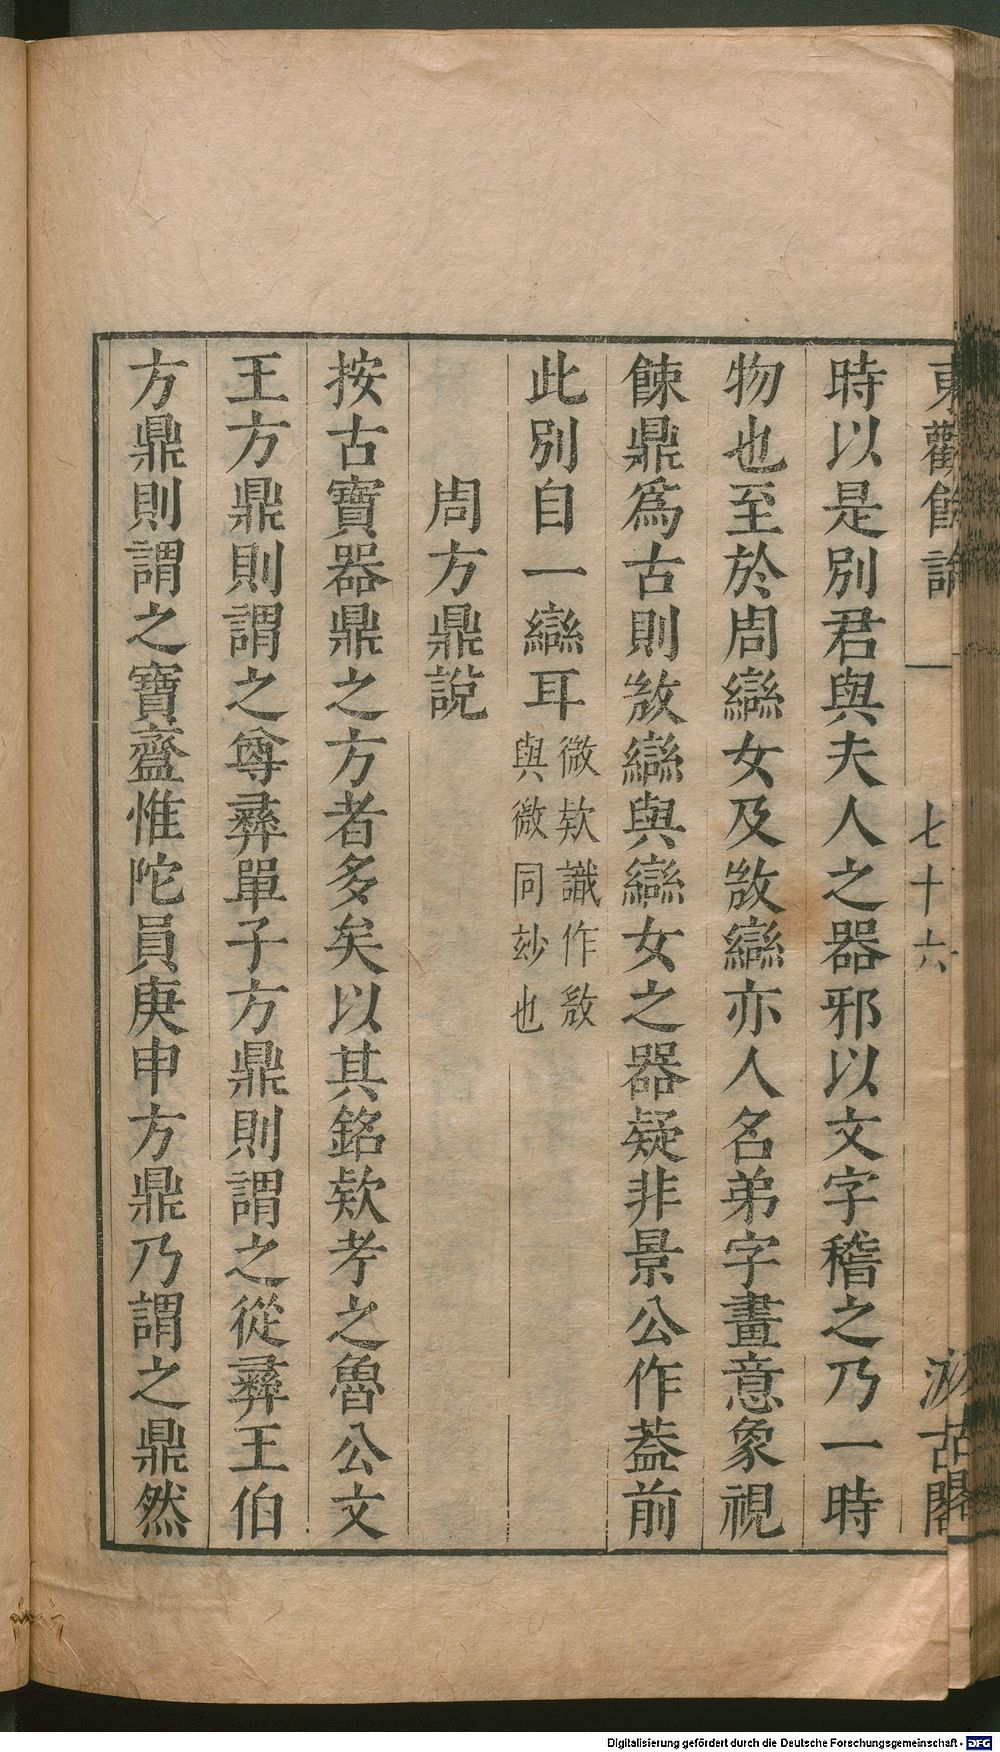 東觀餘論 一 七十六 汲古閣
時以是別君與夫人之器邪以文字稽之乃一時
物也至於周䜌女及敚䜌亦人名弟字畫意象視
餗鼎爲古則敚䜌與䜌女之器疑非景公作葢前
此別自一䜌耳
微欵識作敚
與微同玅也
周方鼎說
按古寶器鼎之方者多矣以其銘欵考之魯公文
王方鼎則謂之尊彞單子方鼎則謂之從彞王伯
方鼎則謂之寶齍惟陀員庚申方鼎乃謂之鼎然
Digitalisierung gefördert durch die Deutsche Forschungsgemeinschaft - DFG